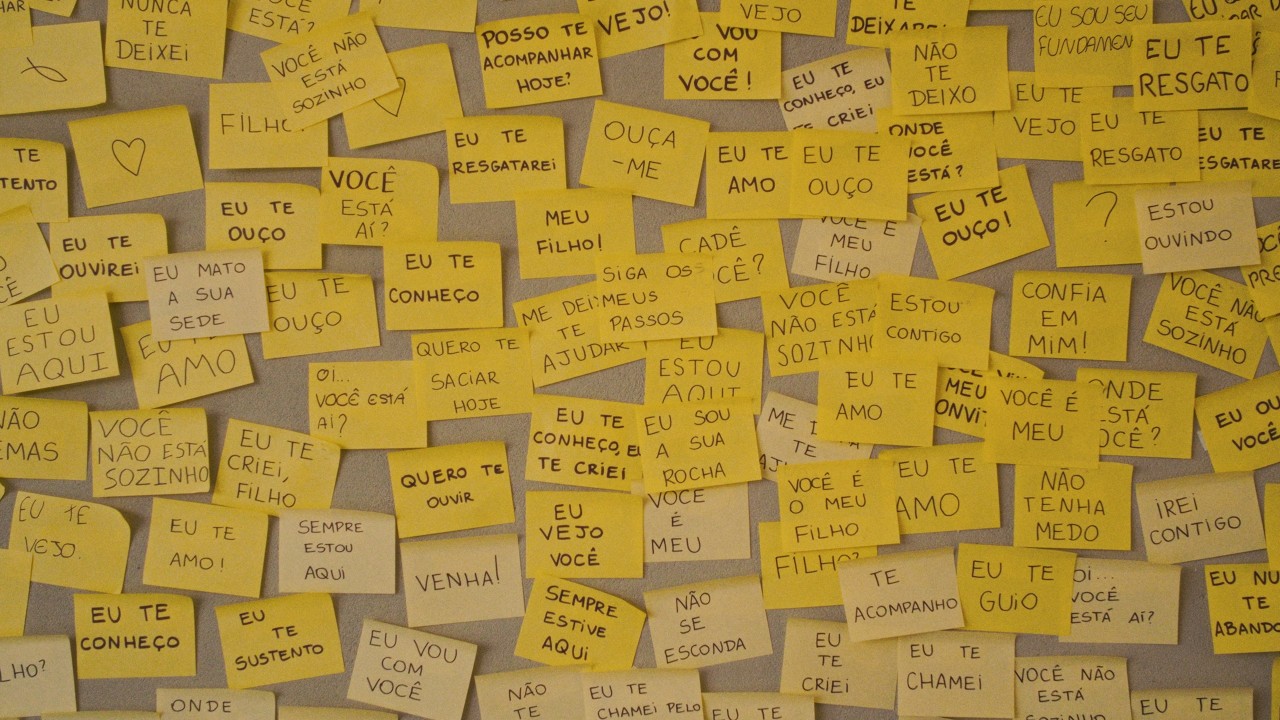 NUNCA
TE
DEIXEI
VOCÊ NÃO
ESTÁ
SOZINHO
POSSO TE
ACOMPANHAR
HOJE?
VEJO!
VOU
COM
VOCÊ!
VEJO
EU TE
CONHEÇO, EU
TE CRIEI
NÃO
TE
DEIXO
EU SOU SEU
EU TE
RESGATO
FILHO
EU TE
RESGATAREI
OUÇA
-ME
EU TE
AMO
EU TE
OUÇO
ONDE
VOCÊ
ESTÁ?
EU TE
VEJO
EU TE
RESGATO
EU TE
TE
EU TE
OUÇO
VOCÊ
ESTÁ
AÍ?
MEU
FILHO!
CADÊ
VOCÊ É
MEU
FILHO
EU TE
OUÇO!
?
ESTOU
OUVINDO
EU TE
OUVIREI
EU MATO
A SUA
SEDE
EU TE
OUÇO
EU TE
CONHEÇO
SIGA OS
MEUS
PASSOS
ME
TE
AJUDAR
VOCÊ
NÃO ESTÁ
SOZINHO
ESTOU
CONTIGO
CONFIA
EM
MIM!
VOCÊ NÃO
ESTÁ
SOZINHO
EU
ESTOU
AQUI
EU TE
AMO
OI...
VOCÊ ESTÁ
AÍ?
QUERO TE
SACIAR
HOJE
EU
ESTOU
AQUI
EU TE
AMO
MEU
VOCÊ É
MEU
ONDE
ESTÁ
VOCÊ?
NÃO
VOCÊ
NÃO ESTÁ
SOZINHO
EU TE
CRIEI,
FILHO
QUERO TE
OUVIR
EU TE
CONHEÇO, EU
TE CRIEI
EU SOU
A SUA
ROCHA
TE
VOCÊ É
O MEU
FILHO
EU TE
AMO
NÃO
TENHA
MEDO
IREI
CONTIGO
EU TE
VEJO.
EU TE
AMO!
SEMPRE
ESTOU
AQUI
VENHA!
EU
VEJO
VOCÊ
VOCÊ
É
MEU
FILHO?
TE
ACOMPANHO
EU TE
GUIO
OI...
ESTÁ AÍ?
EU TE
CONHEÇO
EU
TE
SUSTENTO
EU VOU
COM
VOCÊ
SEMPRE
ESTIVE
AQUI
NÃO
SE
ESCONDA
EU
TE
CRIEI
EU TE
CHAMEI
VOCÊ NÃO
ESTÁ
ONDE
NÃO
TE
EU TE
CHAMEI PELO
EU TE
EU TE